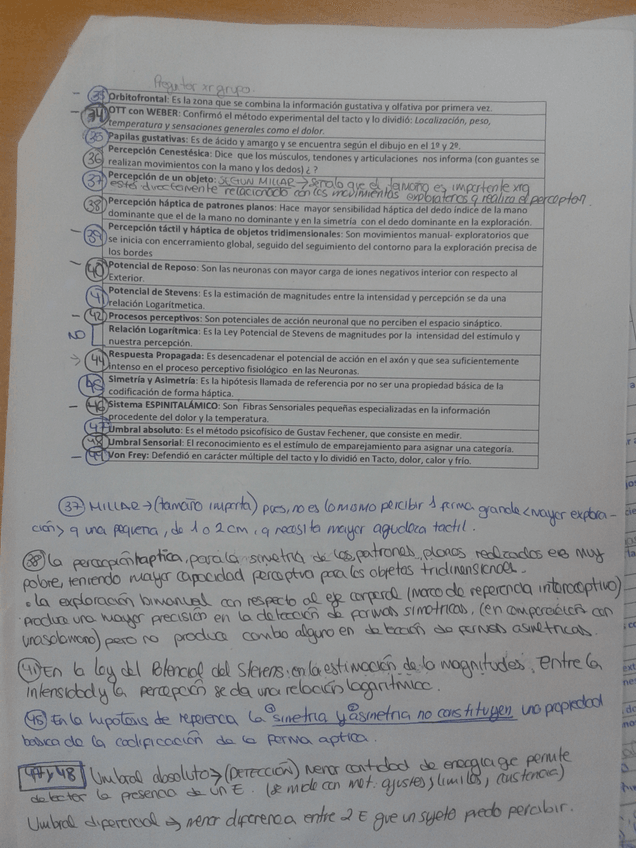 Preguntar xr grupo.
33 Orbitofrontal: Es la zona que se combina la información gustativa y olfativa por primera vez.
34 OTT con WEBER: Confirmó el método experimental del tacto y lo dividió: Localización, peso,
temperatura y sensaciones generales como el dolor.
35 Papilas gustativas: Es de ácido y amargo y se encuentra según el dibujo en el 1º y 2º.
36 Percepción Cenestésica: Dice que los músculos, tendones y articulaciones nos informa (con guantes se
realizan movimientos con la mano y los dedos) ¿ ?
37 Percepción de un objeto: SEGUN MILLAR → Señalo que el tamaño es importante xrq
está directamente relacionado con los movimientos exploratorios q realiza el perceptor.
38 Percepción háptica de patrones planos: Hace mayor sensibilidad háptica del dedo índice de la mano
dominante que el de la mano no dominante y en la simetría con el dedo dominante en la exploración.
39 Percepción táctil y háptica de objetos tridimensionales: Son movimientos manual- exploratorios que
se inicia con encerramiento global, seguido del seguimiento del contorno para la exploración precisa de
los bordes
40 Potencial de Reposo: Son las neuronas con mayor carga de iones negativos interior con respecto al
Exterior.
41 Potencial de Stevens: Es la estimación de magnitudes entre la intensidad y percepción se da una
relación Logaritmetica.
42 Procesos perceptivos: Son potenciales de acción neuronal que no perciben el espacio sináptico.
NO Relación Logarítmica: Es la Ley Potencial de Stevens de magnitudes por la intensidad del estímulo y
nuestra percepción.
→ 44 Respuesta Propagada: Es desencadenar el potencial de acción en el axón y que sea suficientemente
intenso en el proceso perceptivo fisiológico en las Neuronas.
45 Simetría y Asimetría: Es la hipótesis llamada de referencia por no ser una propiedad básica de la
codificación de forma háptica.
46 Sistema ESPINITALÁMICO: Son Fibras Sensoriales pequeñas especializadas en la información
procedente del dolor y la temperatura.
47 Umbral absoluto: Es el método psicofísico de Gustav Fechener, que consiste en medir.
48 Umbral Sensorial: El reconocimiento es el estímulo de emparejamiento para asignar una categoría.
49 Von Frey: Defendió en carácter múltiple del tacto y lo dividió en Tacto, dolor, calor y frío.
37 MILLAR → (tamaño importa) pues, no es lo mismo percibir 1 forma grande <mayor explora-
ción> q una pequeña, de 1 o 2 cm, q necesita mayor agudeza tactil.
38 La percepción haptica, para la simetría de los patrones planos realizados es muy
pobre, teniendo mayor capacidad perceptiva para los objetos tridimensionales.
• la exploración bimanual con respecto al eje corporal (marco de referencia interoceptivo)
produce una mayor precisión en la detección de formas simetricas, (en comparación con
una sola mano) pero no produce cambio alguno en detección de formas asimetricas.
41 En la ley del Potencial del Stevens: en la estimación de la magnitudes. Entre la
intensidad y la percepción se da una relación logarítmica.
45 En la hipotesis de referencia la simetria y asimetria no constituyen una propiedad
básica de la codificación de la forma aptica.
47 y 48 Umbral absoluto → (DETECCIÓN) Menor cantidad de energía qe permite
detectar la presencia de un E. (se mide con met. ajustes, limites, constancia)
Umbral diferencial → menor diferencia entre 2 E que un sujeto puedo percibir.